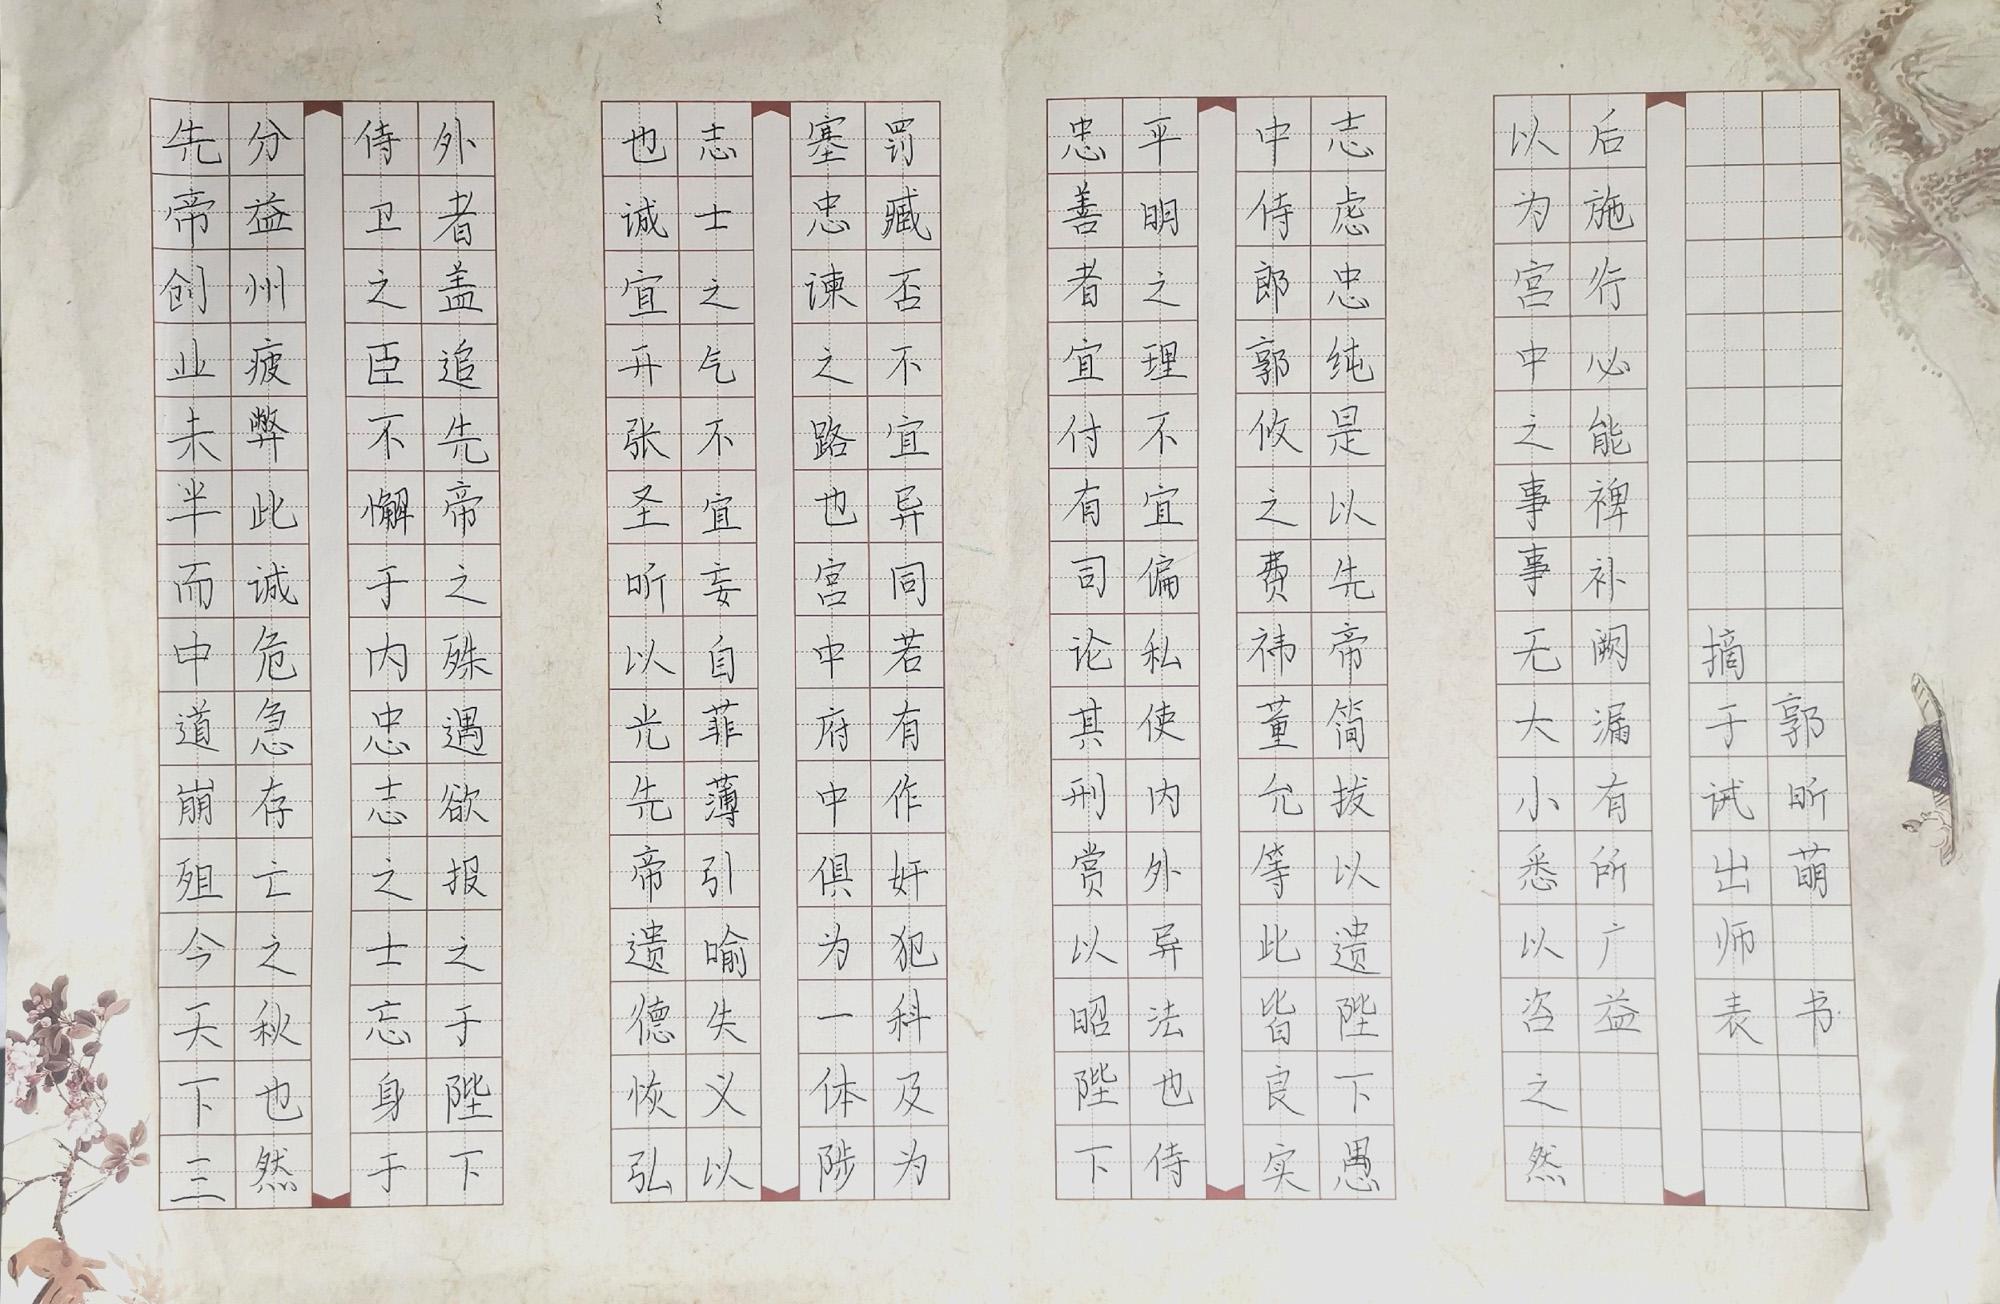 先帝创业未半而中道崩殂今天下三
分益州疲弊此诚危急存亡之秋也然
侍卫之臣不懈于内忠志之士忘身于
外者盖追先帝之殊遇欲报之于陛下
也诚宜开张圣听以光先帝遗德恢弘
志士之气不宜妄自菲薄引喻失义以
塞忠谏之路也宫中府中俱为一体陟
罚臧否不宜异同若有作奸犯科及为
忠善者宜付有司论其刑赏以昭陛下
平明之理不宜偏私使内外异法也侍
中侍郎郭攸之费祎董允等此皆良实
志虑忠纯是以先帝简拔以遗陛下愚
以为宫中之事事无大小悉以咨之然
后施行必能裨补阙漏有所广益
摘于诫出师表
郭昕萌书